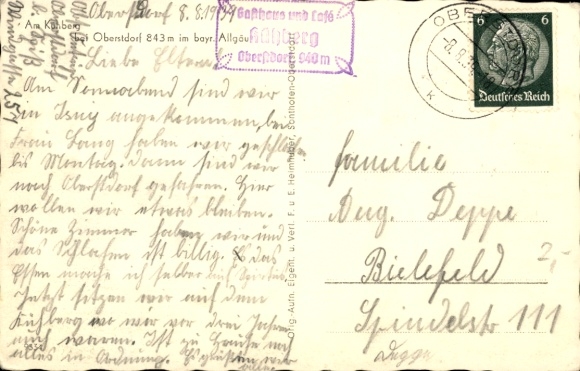 Oberstdorf 8.8.1939
Am Kühberg
bei Oberstdorf 843 m im bayr. Allgäu
Liebe Eltern
Am Sonnabend sind wir
in Isny angekommen, bei
Frau Lang haben wir geschlafen
bis Montag. Dann sind wir
nach Oberstdorf gefahren. Hier
wollen wir etwas bleiben.
Schöne Zimmer haben wir und
das Schlafen ist billig. das
Essen mache ich selber mit Spiritus
Jetzt sitzen wir auf dem
Kühberg wo wir vor drei Jahren
auch waren. Ist zu Hause noch
alles in Ordnung. Es grüßen
Gasthaus und Café
Kühberg
Oberstdorf 940 m
Orig.-Aufn. Eigent. u. Verl. F. u. E. Heimhuber, Sonthofen-Oberstdorf
OBERSTDORF
6 6
Deutsches Reich
k
Familie
Aug. Deppe
Bielefeld
Spindelstr 111
2,-